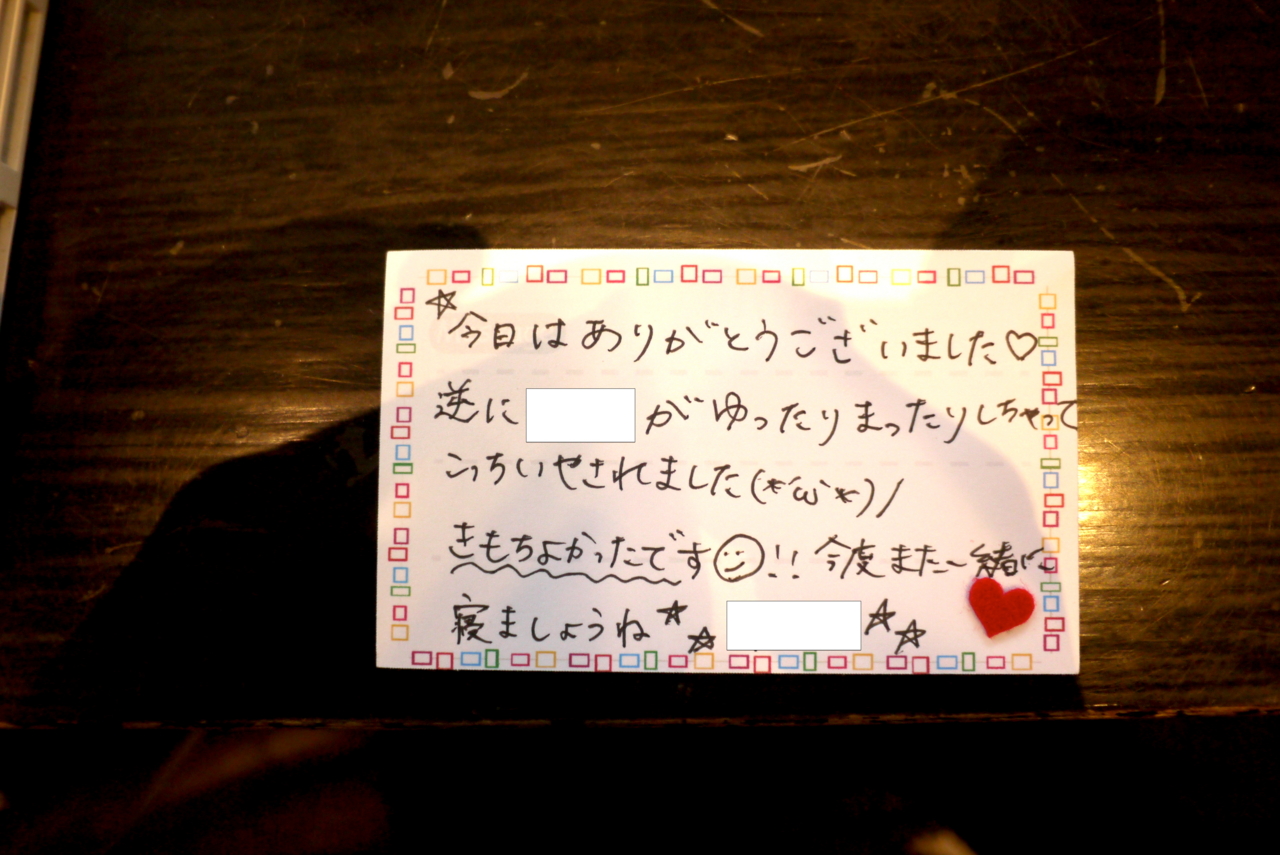 ☆今日はありがとうございました♡
逆に が ゆったりまったりしちゃって
こっちいやされました(*´ω`*)/
きもちよかったです☺!! 今度また一緒に
寝ましょうね☆☆ ☆☆